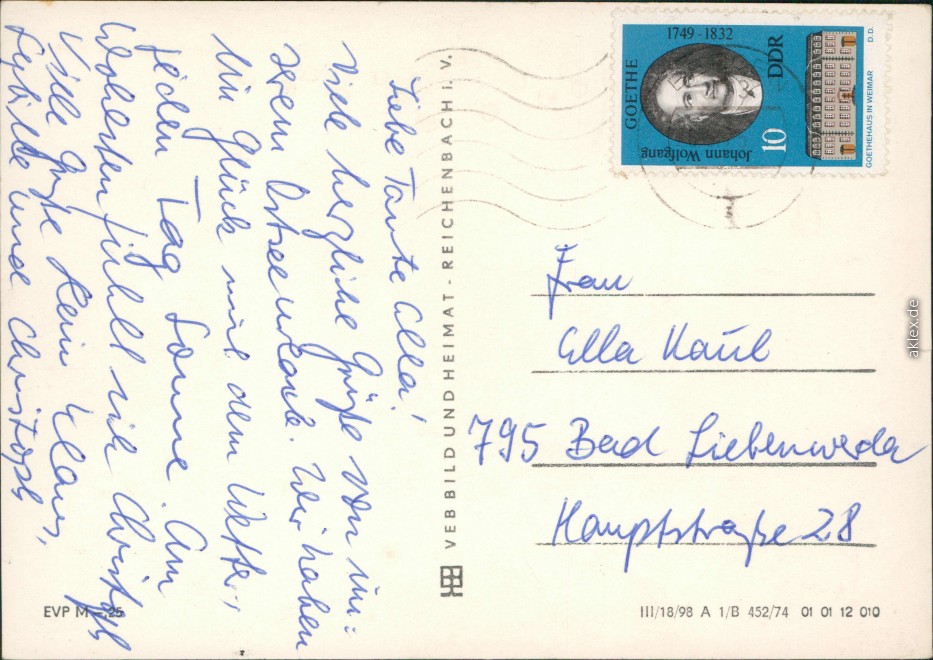 Liebe Tante Ella!
Viele herzliche Grüße von un-
serem Ostseeurlaub. Wir haben
Glück mit dem Wetter,
jeden Tag Sonne. Am
wohlsten fühlt sich Christoph
Viele Grüße Klaus,
und Christoph
VEB BILD UND HEIMAT - REICHENBACH i. V.
1749 - 1832
GOETHE
Johann Wolfgang
10
DDR
GOETHEHAUS IN WEIMAR
D.D.
Frau
Ella Kaul
795 Bad Liebenwerda
Hauptstraße 28
EVP M -.25
III/18/98 A 1/B 452/74 01 01 12 010
aklex.de